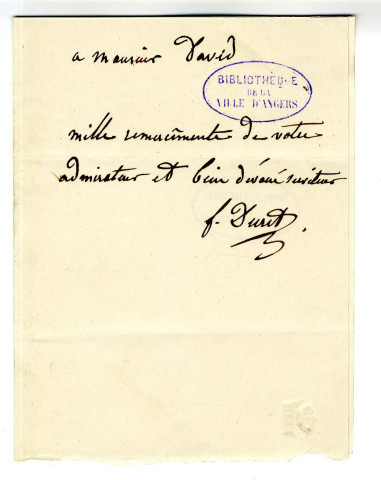 a monsieur David
BIBLIOTHÈQUE
DE LA
VILLE D'ANGERS
mille remerciments de votre
admirateur et bien dévoué serviteur
f. Duret